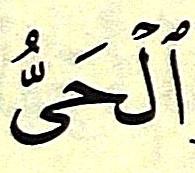 ٱلْحَىُّ